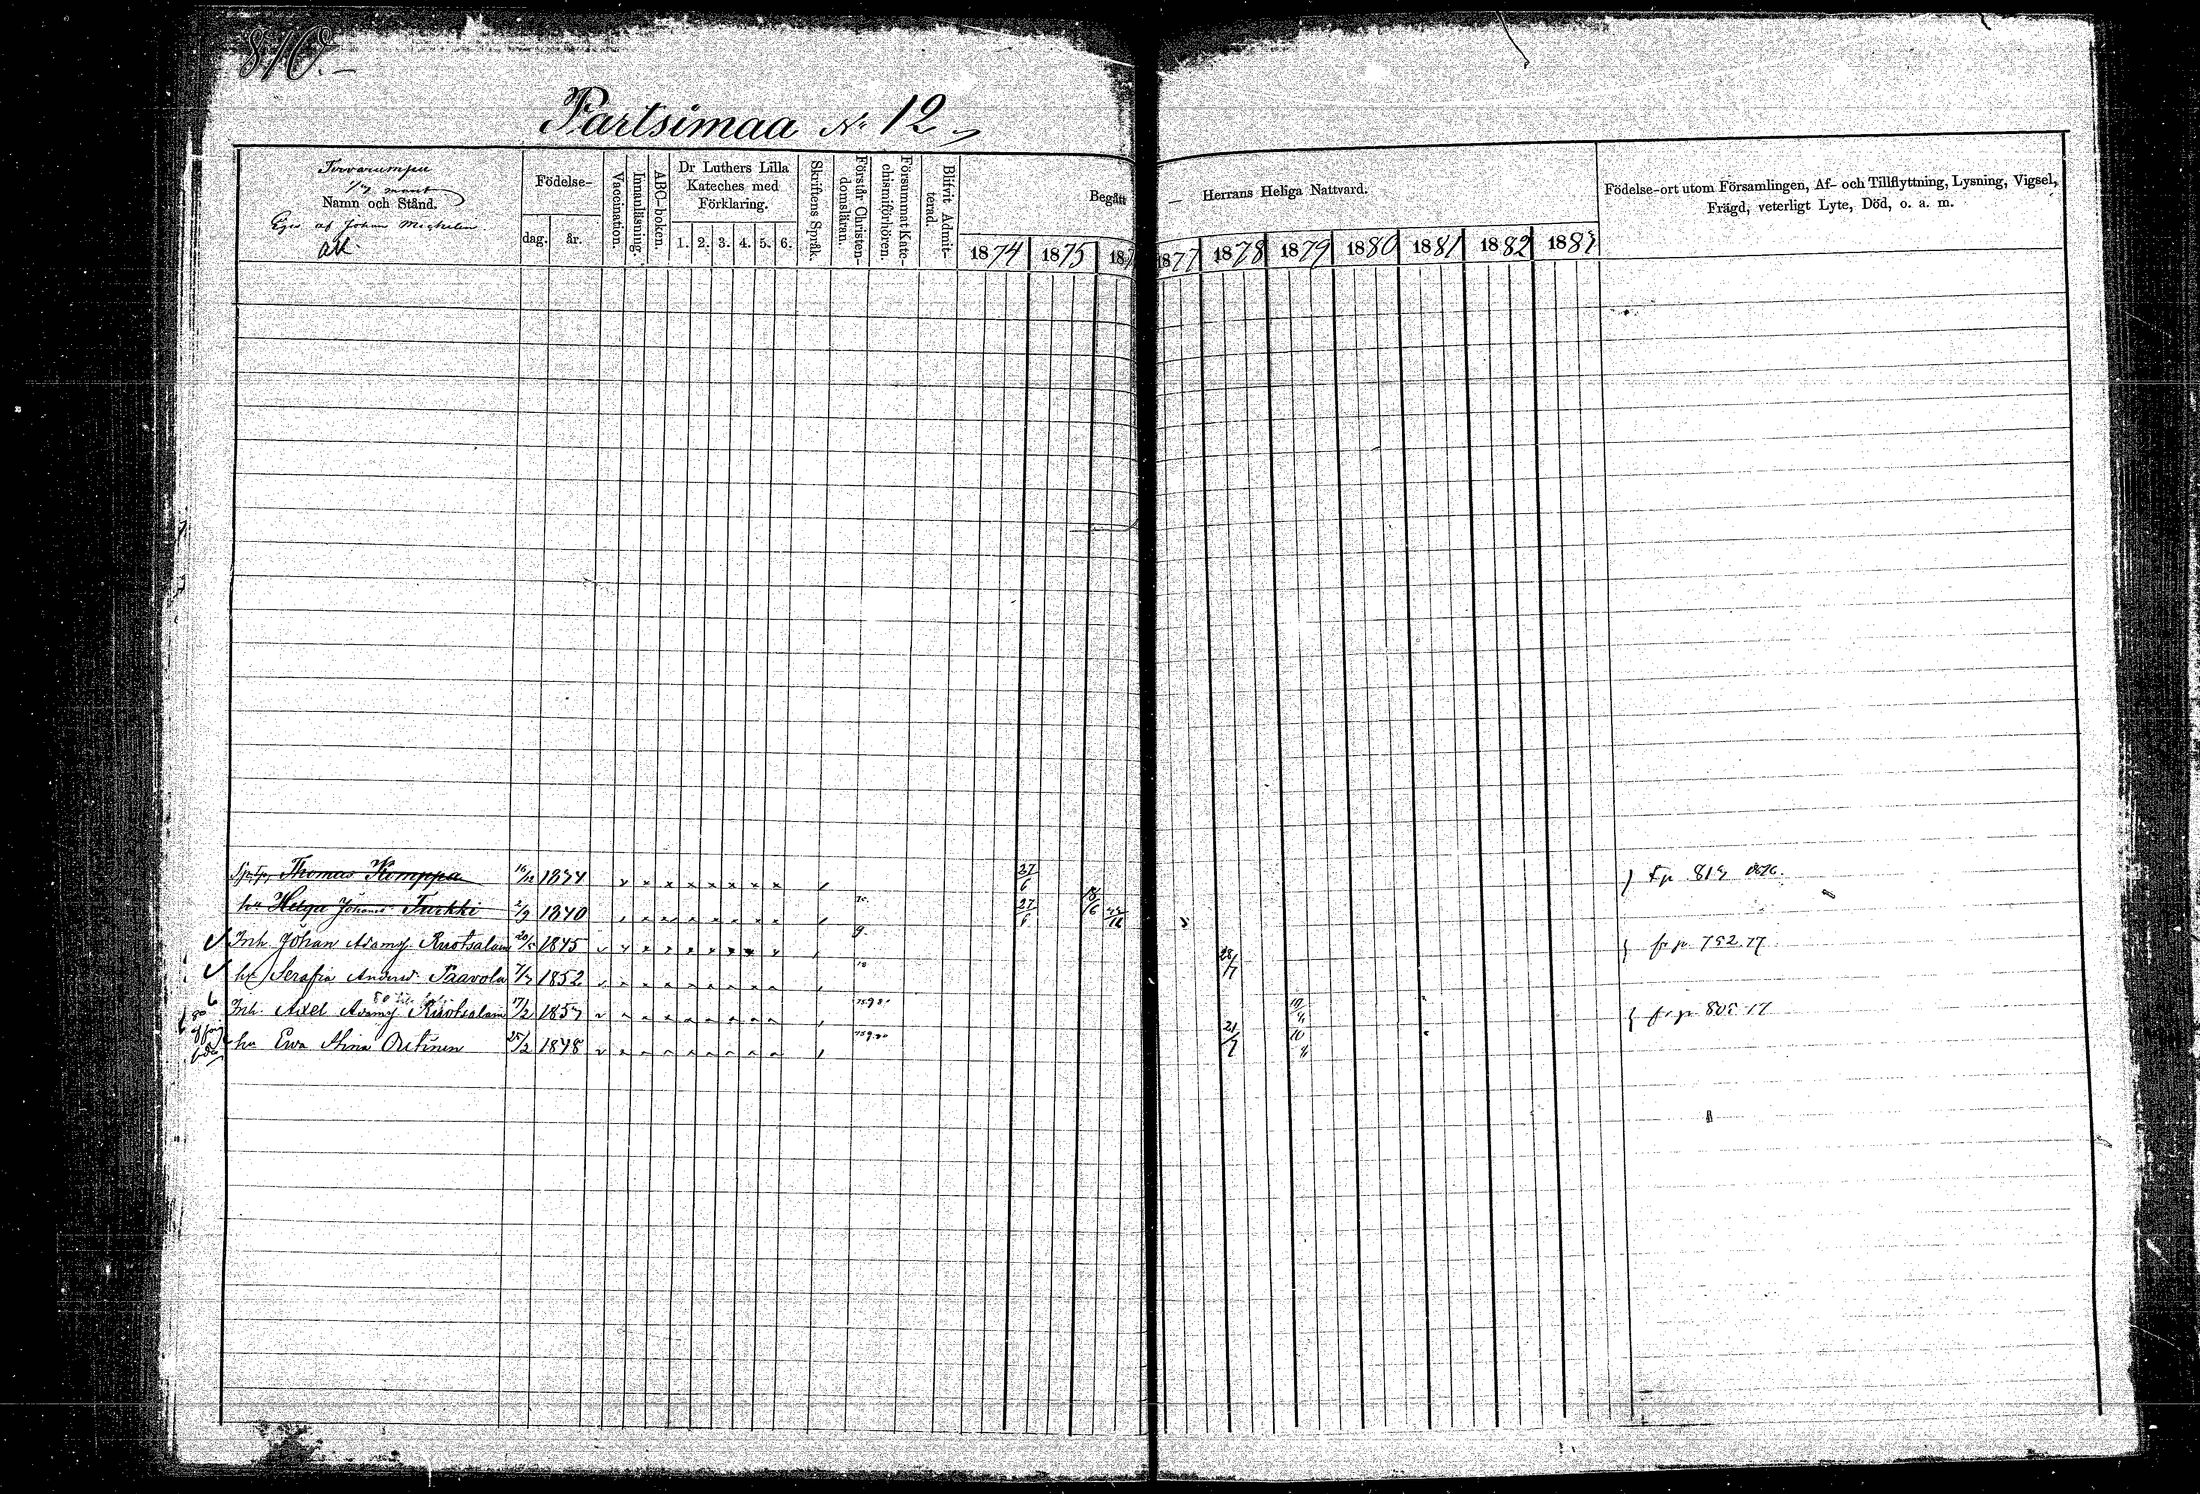 810.
Partsimaa No 12
Tervarumpu
1/4 mant
Namn och Stånd.
Eges af Johan Michelin
Födelse-
dag. år.
Vaccination.
Innanläsning.
ABC-boken.
Dr Luthers Lilla
Kateches med
Förklaring.
1. 2. 3. 4. 5. 6.
Skriftens Språk.
Förstår Christen-
domsläran.
Försummat Kate-
chismiförhören.
Blifvit Admit-
terad.
Begått — Herrans Heliga Nattvard.
1874 1875 187 1877 1878 1879 1880 1881 1882 1883
Födelse-ort utom Församlingen, Af- och Tillflyttning, Lysning, Vigsel,
Frägd, veterligt Lyte, Död, o. a. m.
Thomas Komppa 16/12 1844 27/6
hu Helga Johansd Turkki 2/9 1840 27/6 18/6
Inh. Johan Adamsj. Ruotsalain 20/5 1845 fr p. 752.77
hu Serafia Andersd Paavola 7/7 1852 28/7
Inh. Axel Adamsj Ruotsalain 17/2 1857 10/4 fr p 805 17
hu Ewa Stina Outinen 25/2 1848 21/7 10/4